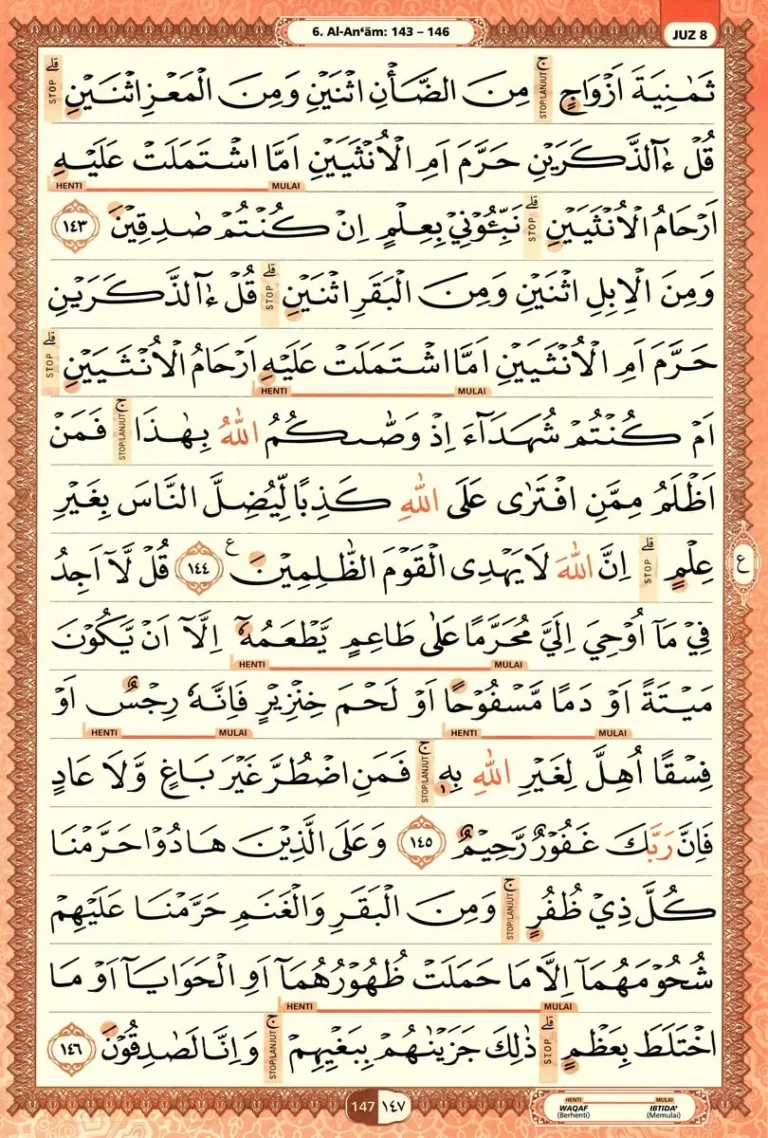 6. Al-An‘ām: 143 – 146
JUZ 8
ثَمٰنِيَةَ اَزْوَاجٍۚ مِنَ الضَّأْنِ اثْنَيْنِ وَمِنَ الْمَعْزِ اثْنَيْنِۗ
STOP/LANJUT STOP
قُلْ ءٰۤالذَّكَرَيْنِ حَرَّمَ اَمِ الْاُنْثَيَيْنِ اَمَّا اشْتَمَلَتْ عَلَيْهِ
HENTI MULAI
اَرْحَامُ الْاُنْثَيَيْنِۗ نَبِّـُٔوْنِيْ بِعِلْمٍ اِنْ كُنْتُمْ صٰدِقِيْنَ ١٤٣
STOP
وَمِنَ الْاِبِلِ اثْنَيْنِ وَمِنَ الْبَقَرِ اثْنَيْنِۗ قُلْ ءٰۤالذَّكَرَيْنِ
STOP
حَرَّمَ اَمِ الْاُنْثَيَيْنِ اَمَّا اشْتَمَلَتْ عَلَيْهِ اَرْحَامُ الْاُنْثَيَيْنِۗ
STOP
HENTI MULAI
اَمْ كُنْتُمْ شُهَدَاۤءَ اِذْ وَصّٰىكُمُ اللّٰهُ بِهٰذَاۚ فَمَنْ
STOP/LANJUT
اَظْلَمُ مِمَّنِ افْتَرٰى عَلَى اللّٰهِ كَذِبًا لِّيُضِلَّ النَّاسَ بِغَيْرِ
عِلْمٍۗ اِنَّ اللّٰهَ لَا يَهْدِى الْقَوْمَ الظّٰلِمِيْنَ ࣖ ١٤٤ قُلْ لَّآ اَجِدُ
STOP
ع
فِيْ مَآ اُوْحِيَ اِلَيَّ مُحَرَّمًا عَلٰى طَاعِمٍ يَّطْعَمُهٗٓ اِلَّآ اَنْ يَّكُوْنَ
HENTI MULAI
مَيْتَةً اَوْ دَمًا مَّسْفُوْحًا اَوْ لَحْمَ خِنْزِيْرٍ فَاِنَّهٗ رِجْسٌ اَوْ
HENTI MULAI HENTI MULAI
فِسْقًا اُهِلَّ لِغَيْرِ اللّٰهِ بِهٖۚ فَمَنِ اضْطُرَّ غَيْرَ بَاغٍ وَّلَا عَادٍ
STOP/LANJUT
فَاِنَّ رَبَّكَ غَفُوْرٌ رَّحِيْمٌ ١٤٥ وَعَلَى الَّذِيْنَ هَادُوْا حَرَّمْنَا
كُلَّ ذِيْ ظُفُرٍۚ وَمِنَ الْبَقَرِ وَالْغَنَمِ حَرَّمْنَا عَلَيْهِمْ
STOP/LANJUT
شُحُوْمَهُمَآ اِلَّا مَا حَمَلَتْ ظُهُوْرُهُمَآ اَوِ الْحَوَايَآ اَوْ مَا
HENTI MULAI
اخْتَلَطَ بِعَظْمٍۗ ذٰلِكَ جَزَيْنٰهُمْ بِبَغْيِهِمْۚ وَاِنَّا لَصٰدِقُوْنَ ١٤٦
STOP STOP/LANJUT
147 ١٤٧
HENTI MULAI
WAQAF IBTIDA'
(Berhenti) (Memulai)